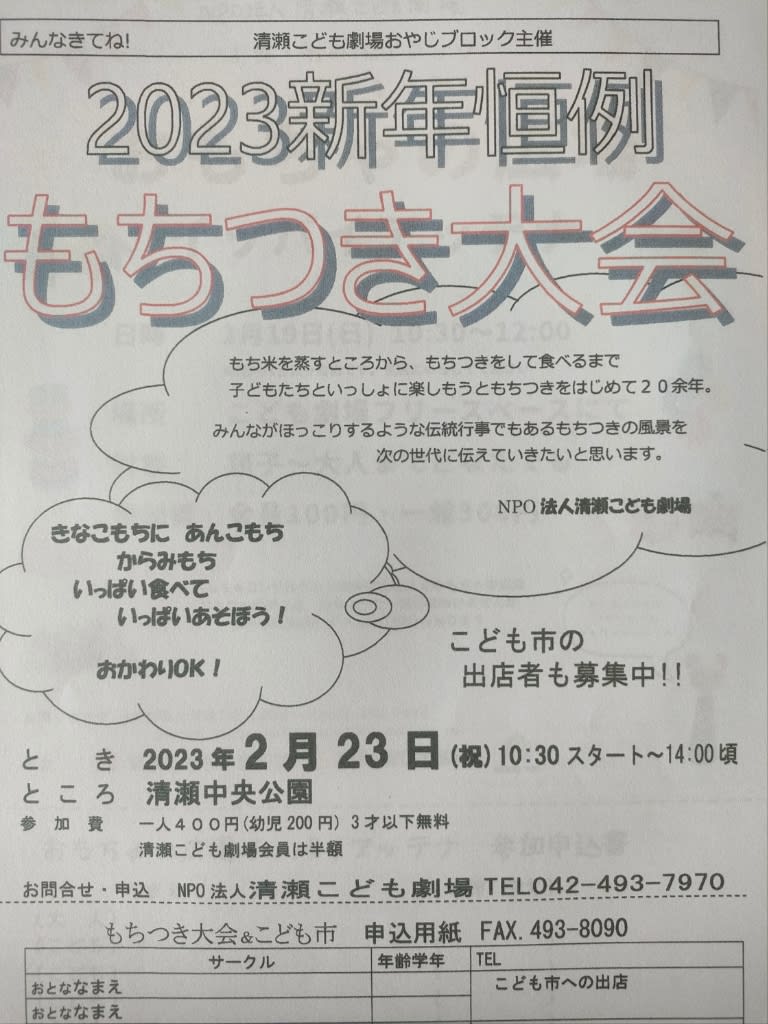 みんなきてね! 清瀬こども劇場おやじブロック主催
2023新年恒例
もちつき大会
もち米を蒸すところから、もちつきをして食べるまで
子どもたちといっしょに楽しもうともちつきをはじめて20余年。
みんながほっこりするような伝統行事でもあるもちつきの風景を
次の世代に伝えていきたいと思います。
NPO 法人清瀬こども劇場
きなこもちに あんこもち
からみもち
いっぱい食べて
いっぱいあそぼう!
おかわりOK!
こども市の
出店者も募集中!!
と き 2023年2月23日(祝)10:30スタート~14:00頃
ところ 清瀬中央公園
参加費 一人400円(幼児200円) 3才以下無料
清瀬こども劇場会員は半額
お問合せ・申込 NPO法人清瀬こども劇場 TEL042-493-7970
もちつき大会&こども市 申込用紙 FAX.493-8090
サークル 年齢学年 TEL
おとななまえ こども市への出店
おとななまえ